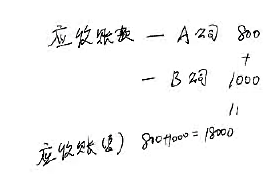 应收账款 — A公司 800
+
— B公司 1000
||
应收账(借) 800+1000=18000